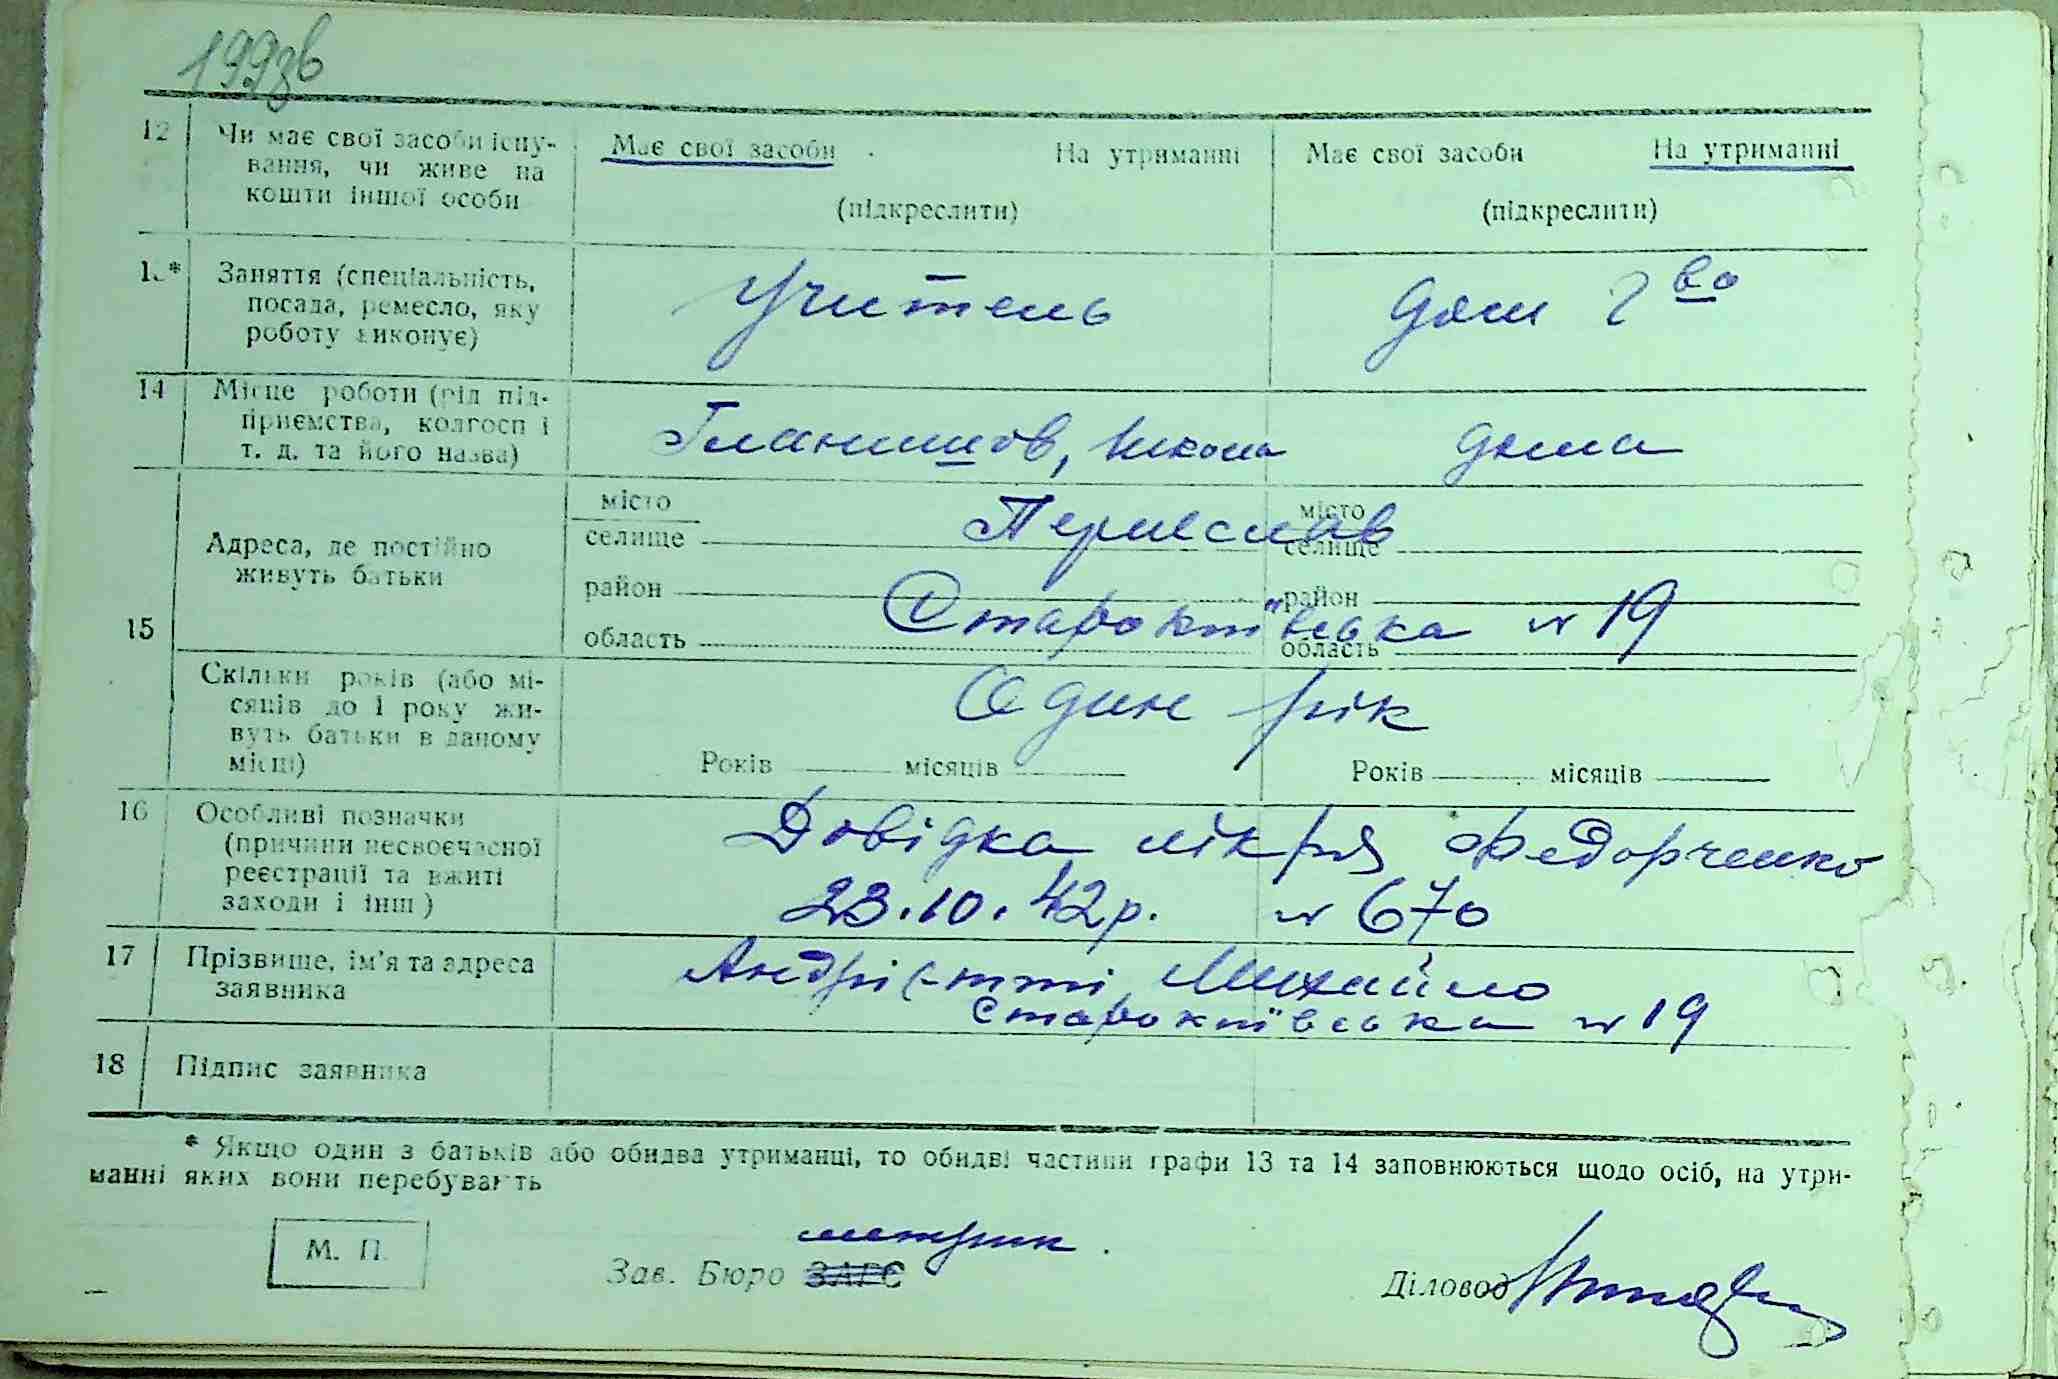 199зв
12 Чи має свої засоби існу- Має свої засоби На утриманні Має свої засоби На утриманні
вання, чи живе на
кошти іншої особи (підкреслити) (підкреслити)
13* Заняття (спеціальність, учитель дом г во
посада, ремесло, яку
роботу виконує)
14 Місце роботи (рід під- школа дома
приємства, колгосп і
т. д. та його назва)
15 Адреса, де постійно місто Переяслав місто
живуть батьки селище селище
район район
область Старокиївська № 19 область
Скільки років (або мі- Один рік
сяців до 1 року жи-
вуть батьки в даному
місці) Років місяців Років місяців
16 Особливі позначки Довідка лікря Федорченко
(причини несвоєчасної
реєстрації та вжиті 23.10.42р. № 670
заходи і інш)
17 Прізвище, ім'я та адреса Михайло
заявника Старокиївська № 19
18 Підпис заявника
* Якщо один з батьків або обидва утриманці, то обидві частини графи 13 та 14 заповнюються щодо осіб, на утри-
манні яких вони перебувають
метрик.
М. П. Зав. Бюро ЗАГС Діловод